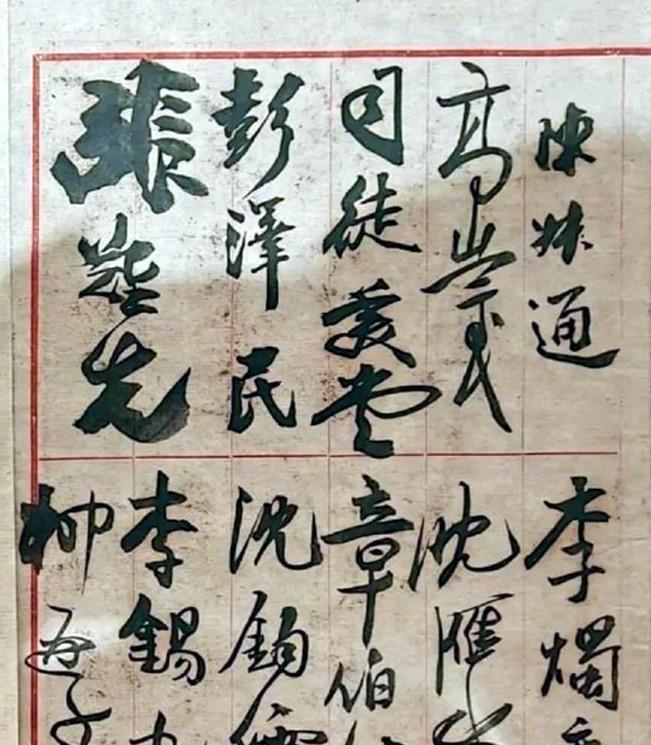 陳叔通
高崇民
司徒美堂
彭澤民
張難先
李燭
沈雁
章伯
沈鈞儒
李錫
柳亞子